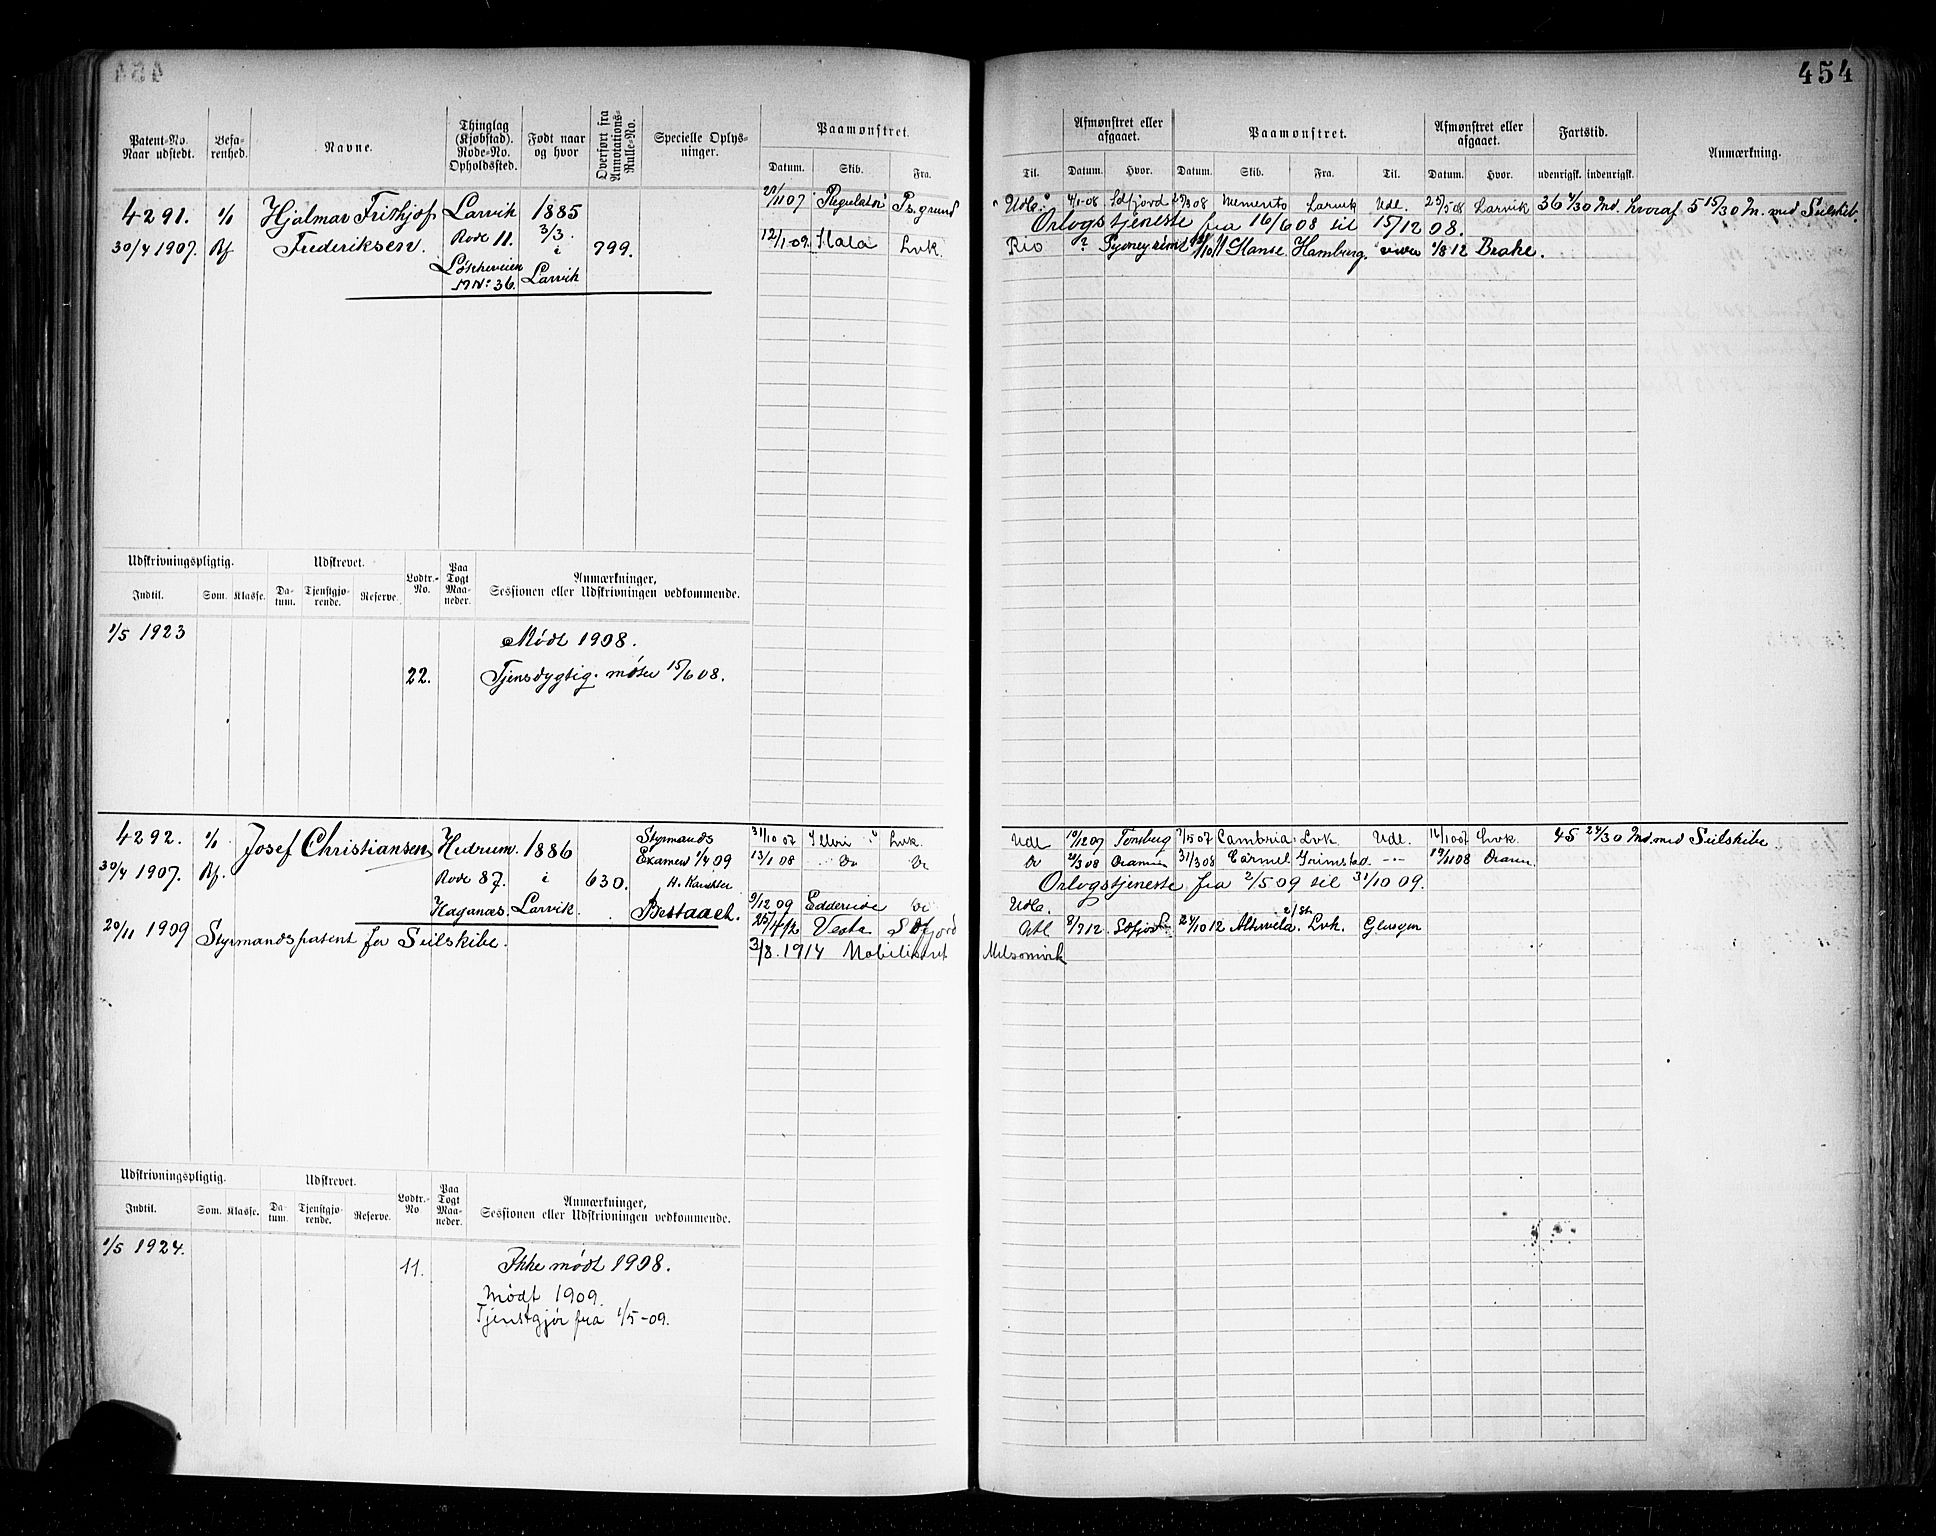 454
Patent-No. Naar udstedt.
Befarenhed.
Navne.
Thinglag (Kjøbstad). Rode-No. Opholdssted.
Født naar og hvor
Overført fra Annotations-Rulle-No.
Specielle Oplysninger.
Paamønstret.
Datum. Skib. Fra.
Til.
Afmønstret eller afgaaet.
Datum. Hvor.
Paamønstret.
Datum. Skib. Fra. Til.
Afmønstret eller afgaaet.
Datum. Hvor.
Fartstid.
udenrigsk. indenrigsk.
Anmærkning.
4291. Hjalmar Frithjof Larvik 1885
30/4 1907. Bf Frederiksen. Rode 11. 3/3. i 799.
No. 36. Larvik
11 07 Regulator P.s.grund Udl. 4/1-08 Sdfjord 08 Memento Larvik Udl. 25/5 08 Larvik 36 Md. hvoraf 5 15/30 M. med Seilskib.
Orlogstjeneste fra 16/6 08 til 15/12 08.
12/1-09 Lvk. Rio ? Hanse Hamburg. 1/8 12 Brake.
Udskrivningspligtig. Udskrevet. Lodtr.-No. Paa Togt Maaneder. Anmærkninger, Sessionen eller Udskrivningen vedkommende.
Indtil. Som. Klasse. Datum. Tjenstgjørende. Reserve.
1/5 1923 Mødt 1908.
22. Tjensdygtig. møder 15/6 08.
4292. Josef Christiansen Hedrum. 1886 Styrmands
30/4 1907. Bf. Rode 87. i 630. Examen 1/4 09
Larvik. H. Karakter
Bestaaet.
20/11 1909 Styrmandspatent for Seilskibe.
31/10 07 Lvk. Udl 09 Tønsberg 5 07 Cambria Lvk Udl. 16/10 07 Lvk 45 24/30 Md. med Seilskibe
13/1 08 Do Do Do 3 08 Dramm 31/3 08 Carmel Grimstad 19/11 08 Dramn
Orlogstjeneste fra 2/5 09 til 31/10 09.
9/12 09 Do Udl.
Vesta Sdfjord Udl 8/7 12 Sdfjord 24/10 12 Lvk.
3/8. 1914 Mobiliseret Melsomvik
Udskrivningspligtig. Udskrevet. Lodtr.-No Paa Togt Maaneder. Anmærkninger, Sessionen eller Udskrivningen vedkommende.
Indtil. Som. Klasse. Datum. Tjenstgjørende. Reserve.
1/5 1924.
11. Ikke mødt 1908.
Mødt 1909.
Tjenstgjør fra 1/5-09.